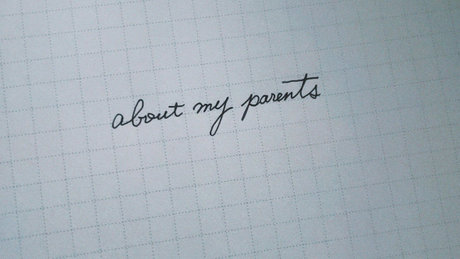 about my parents